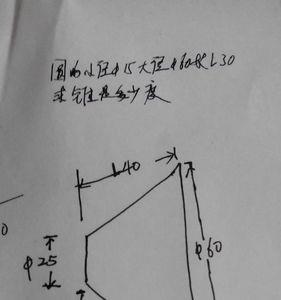 圆的小径φ15大径φ60长L30
求锥是多少度
L40
0
φ25
φ60